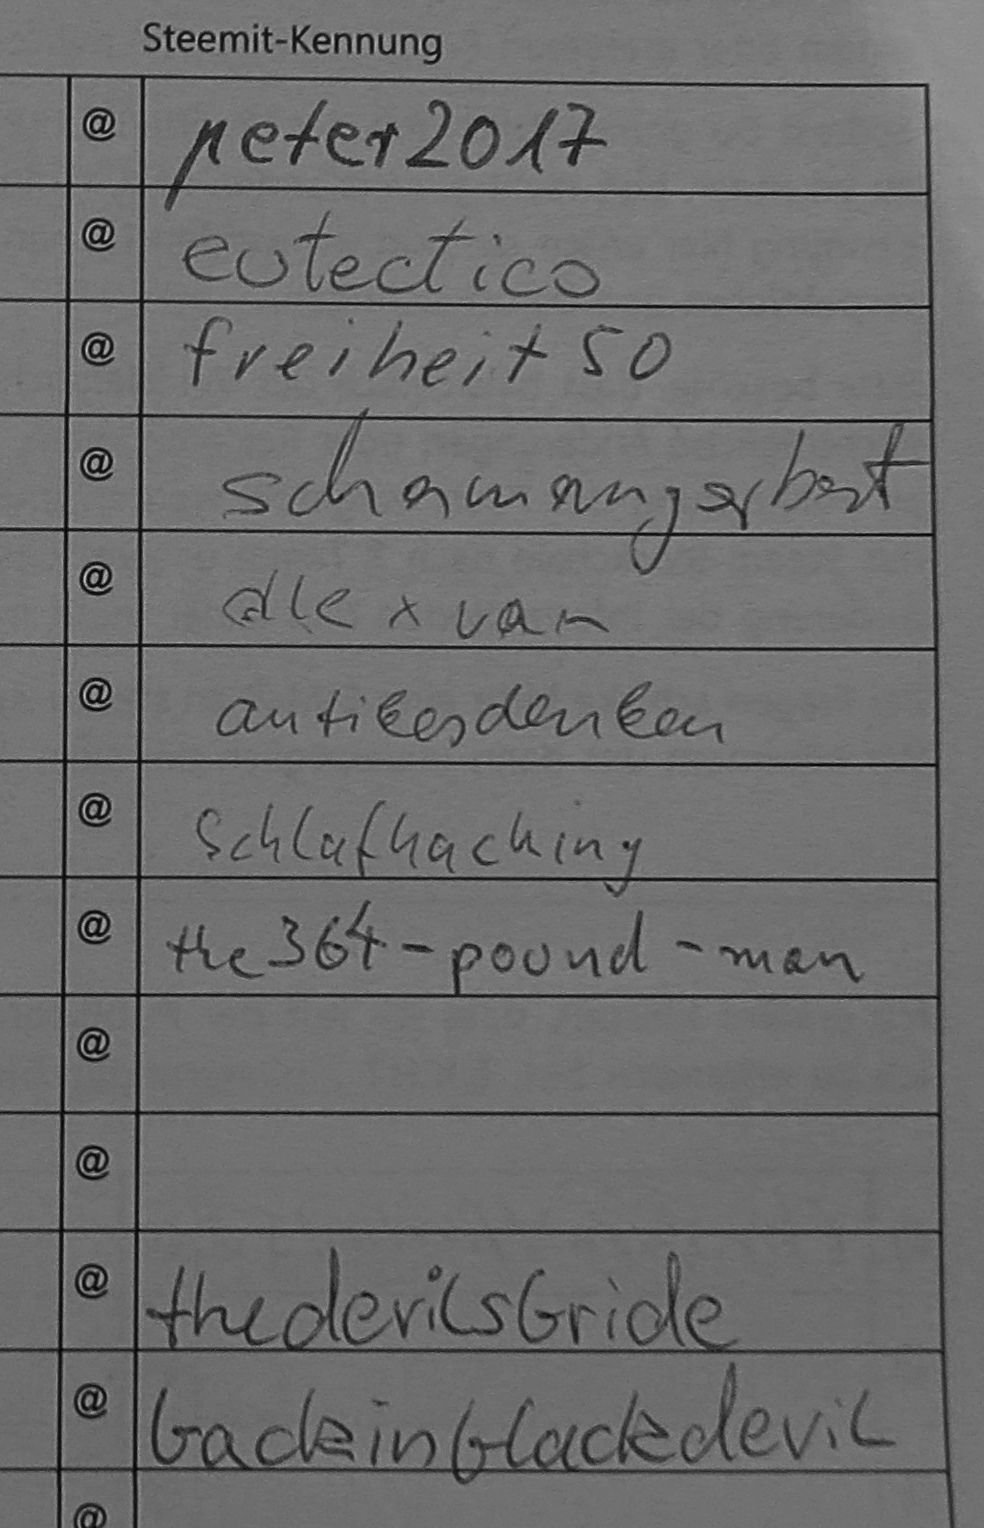 Steemit-Kennung
@ peter2017
@ eutectico
@ freiheit50
@
@ alexvan
@ antikesdenken
@ schlafhacking
@ the364-pound-man
@
@
@ thedevilsbride
@ backinblackdevil
@